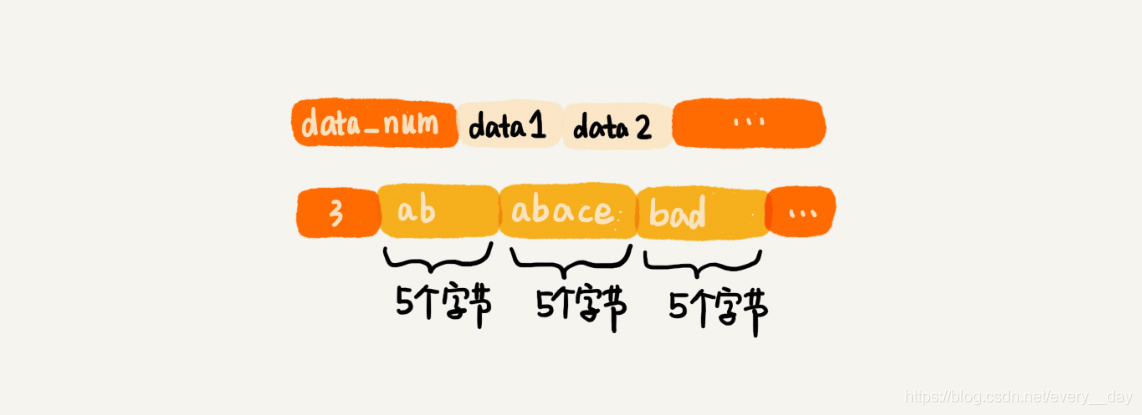 data_num data1 data2 ...
3 ab abace bad ...
5个字节 5个字节 5个字节
https://blog.csdn.net/every__day